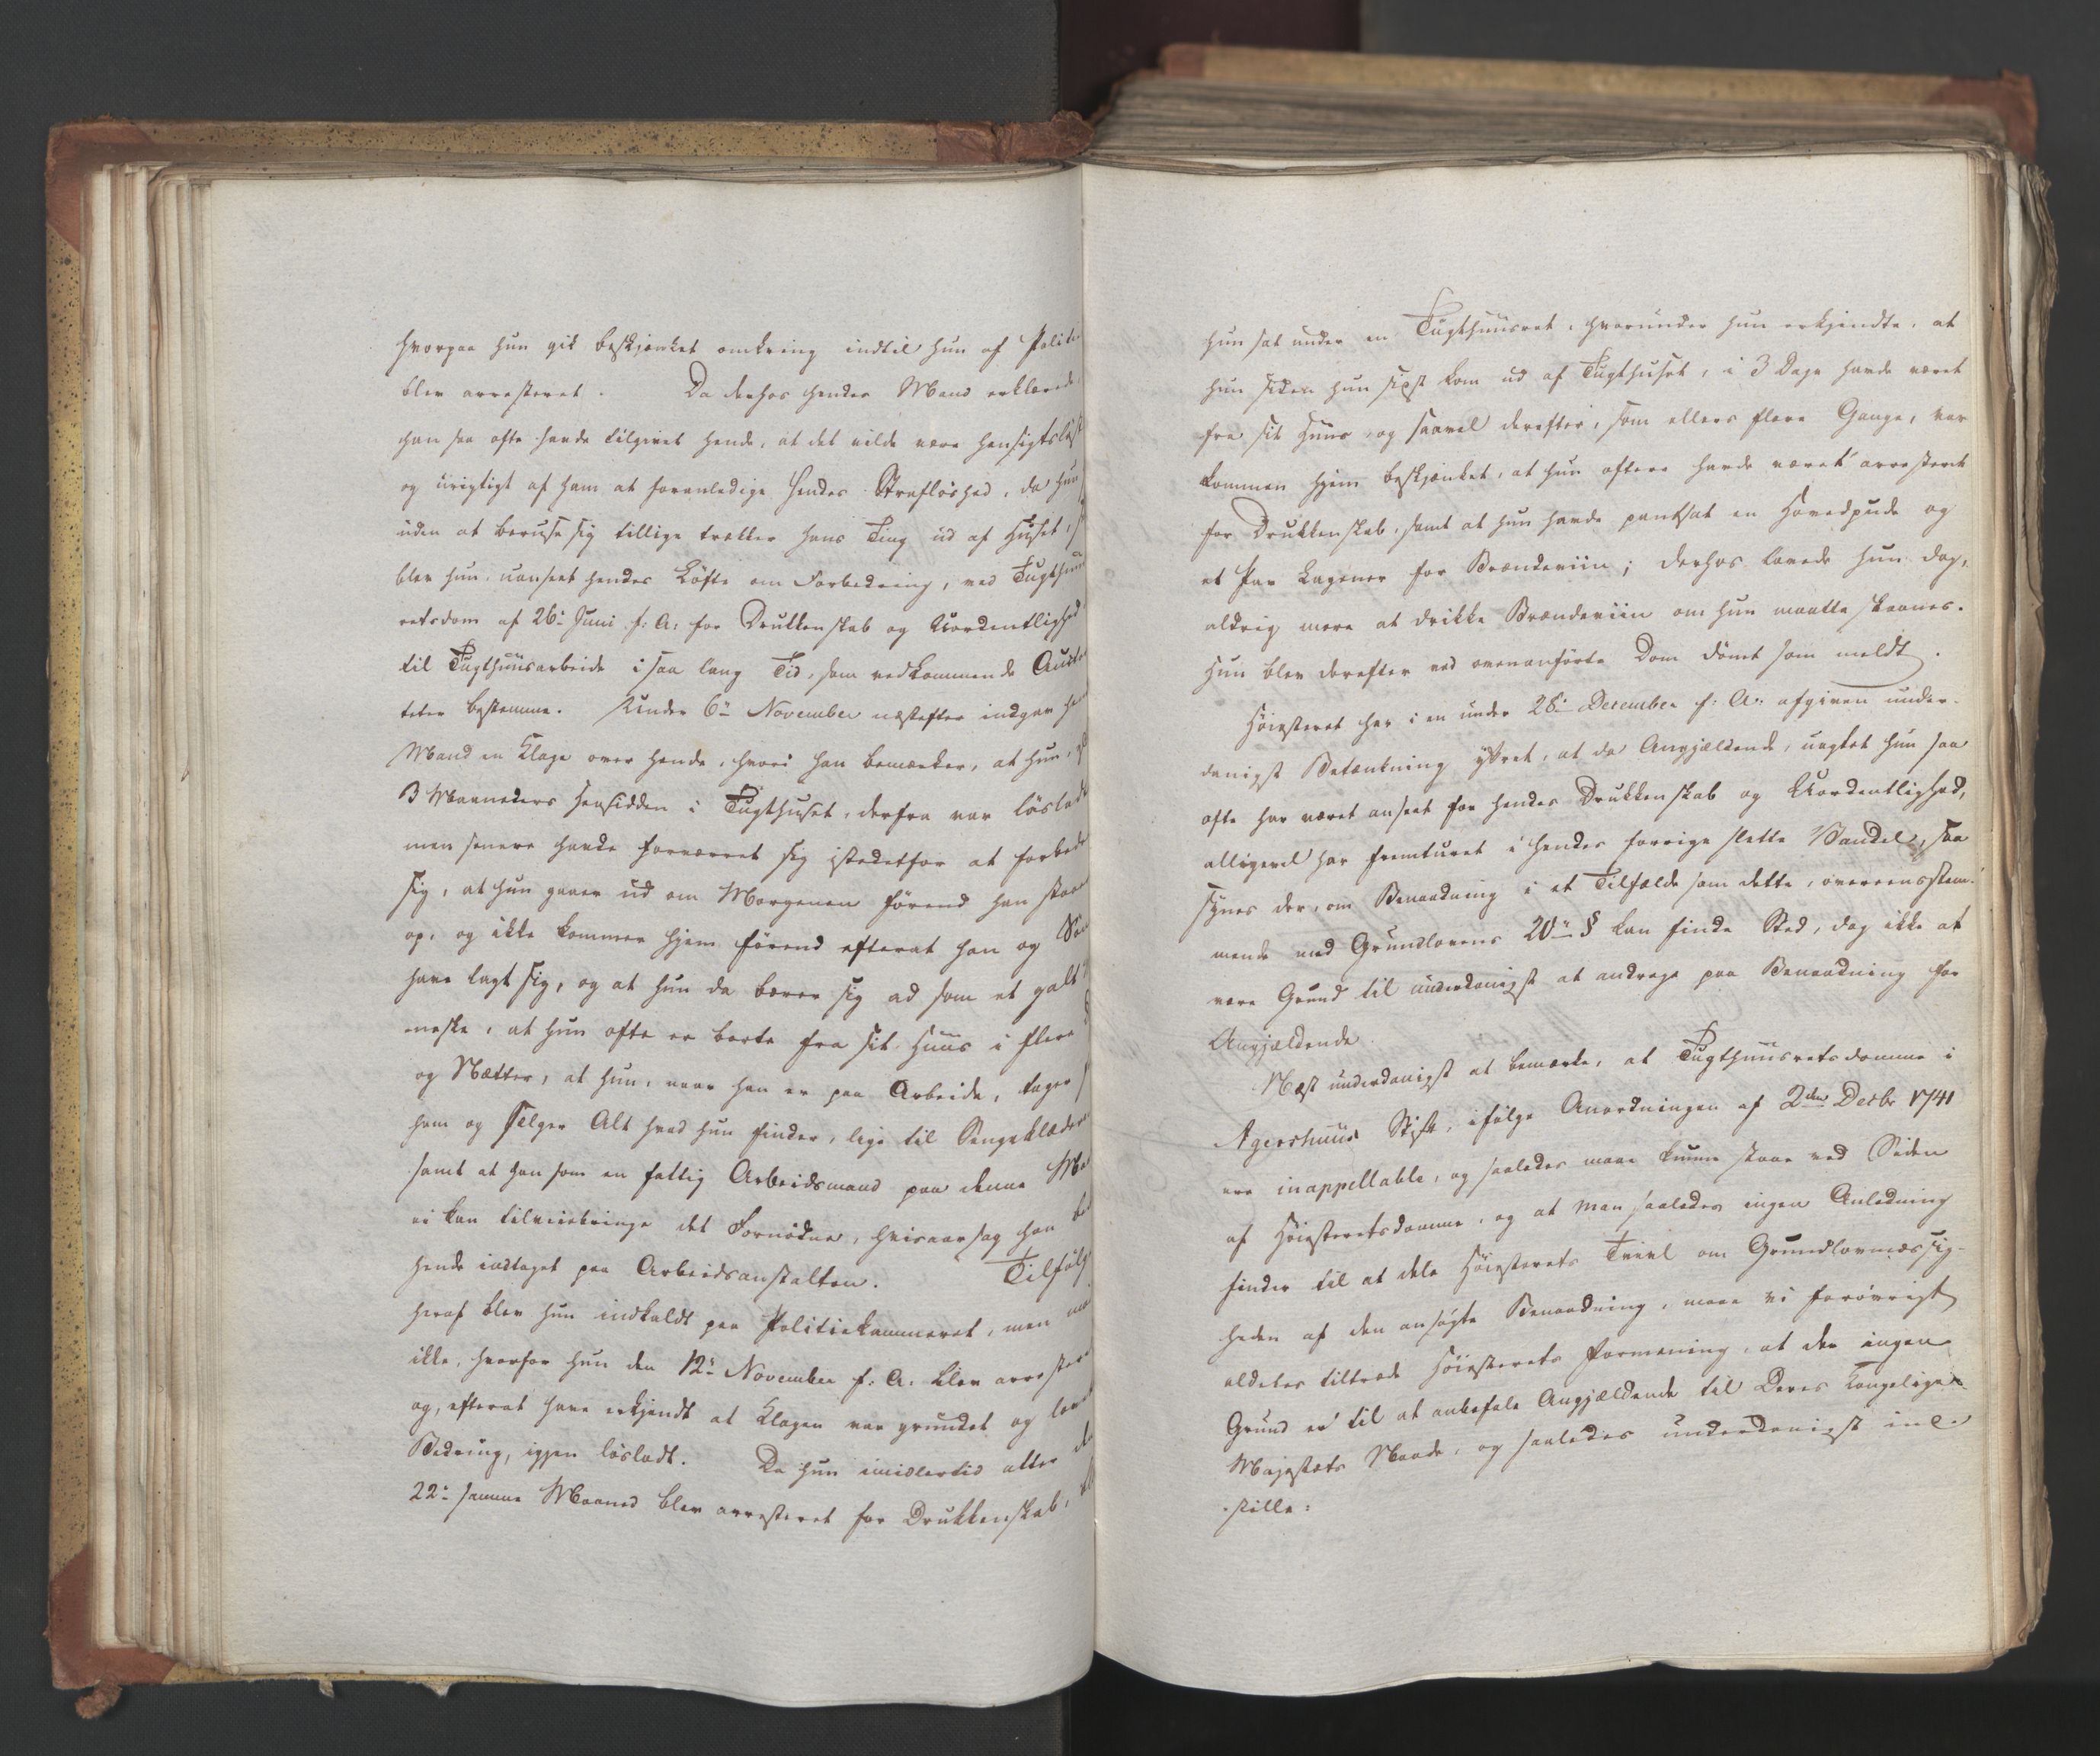 hvorpaa hun gik beskjænket omkring indtil hun af Politie
blev arresteret. Da derhos hendes Mand erklærede,
han saa ofte havde tilgivet hende, at det vilde være hensigtsløst
og urigtigt af ham at foranledige hendes Strafløshed, da hun
uden at beruse sig tillige trækker hans Ting ud af Huset,
blev hun, uanseet hendes Løfte om Forbedring, ved Tugthuus
retsdom af 26: Juni f: A: for Drukkenskab og Uordentlighed
til Tugthuusarbeide i saa lang Tid, som vedkommende Aucto
teter bestemme. Under 6: November næstefter indgav
Mand en Klage over hende, hvori han bemærker, at hun,
3 Maaneders Hensidden i Tugthuset, derfra var løsladt
men senere havde forværret sig istedetfor at forbedre
sig, at hun gaaer ud om Morgenen førend han staaer
op, og ikke kommer hjem førend efterat han og
have lagt sig, og at hun da bærer sig ad som et galt
neske, at hun ofte er borte fra sit Huus i flere
og Nætter, at hun, naar han er paa Arbeide, tager
ham og sælger Alt hvad hun finder, lige til Sengeklæder
samt at han som en fattig Arbeidsmand paa denne
ei kan tilveiebringe det Fornødne, hvisaarsag han
hende indtaget paa Arbeidsanstalten. Tilfølge
heraf blev hun indkaldt paa Politiekammeret, men
ikke, hvorfor hun den 12: November f: A: blev arresteret
og, efterat have erkjendt at Klagen var grundet og lovet
Bedring, igjen løsladt. Da hun imidlertid atter
22: samme Maaned blev arresteret for Drukkenskab,
hun sat under en Tugthuusret, hvorunder hun erkjendte, at
hun siden hun sidst kom ud af Tugthuset, i 3 Dage havde været
fra sit Huus, og saavel derefter, som ellers flere Gange, var
kommen hjem beskjænket, at hun oftere havde været arresteret
for Drukkenskab, samt at hun havde pantsat en Hovedpude og
et Par Lagener for Brændeviin; derhos lovede hun dog,
aldrig mere at drikke Brændeviin om hun maatte skaanes.
Hun blev derefter ved ovenanførte Dom dømt som meldt.
Høiesteret har i en under 28: December f: A: afgiven under-
danigst Betænkning yttret, at da Angjældende, uagtet hun saa
ofte har været anseet for hendes Drukkenskab og Uordentlighed,
alligevel har fremturet i hendes forrige slette Vandel, saa
synes der, om Benaadning i et Tilfælde som dette, overeensstem-
mende med Grundlovens 20: § kan finde Sted, dog ikke at
være Grund til underdanigst at andrage paa Benaadning for
Angjældende.
Næst underdanigst at bemærke, at Tugthuusretsdomme i
Agershuus Stift, ifølge Anordningen af 2den Decbr 1741
ere inappellable, og saaledes maae kunne staae ved Siden
af Høiesteretsdomme, og at man saaledes ingen Anledning
finder til at dele Høiesterets Tvivl om Grundlovmæssig-
heden af den ansøgte Benaadning, maae vi forøvrigt
aldeles tiltræde Høiesterets Formening, at der ingen
Grund er til at anbefale Angjældende til Deres Kongelige
Majestæts Naade, og saaledes underdanigst ind-
stille: